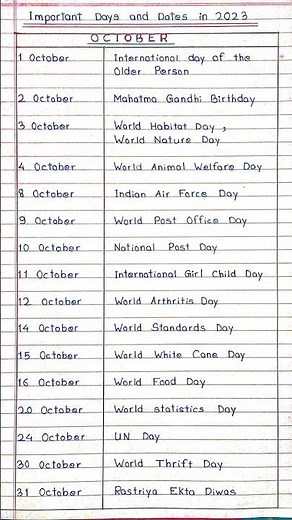 Important Days and Dates in 2023
OCTOBER
1 October International day of the
Older Person
2 October Mahatma Gandhi Birthday
3 October World Habitat Day ,
World Nature Day
4 October World Animal Welfare Day
8 October Indian Air Force Day
9 October World Post Office Day
10 October National Post Day
11 October International Girl Child Day
12 October World Arthritis Day
14 October World Standards Day
15 October World White Cane Day
16 October World Food Day
20 October World statistics Day
24 October UN Day
30 October World Thrift Day
31 October Rastriya Ekta Diwas